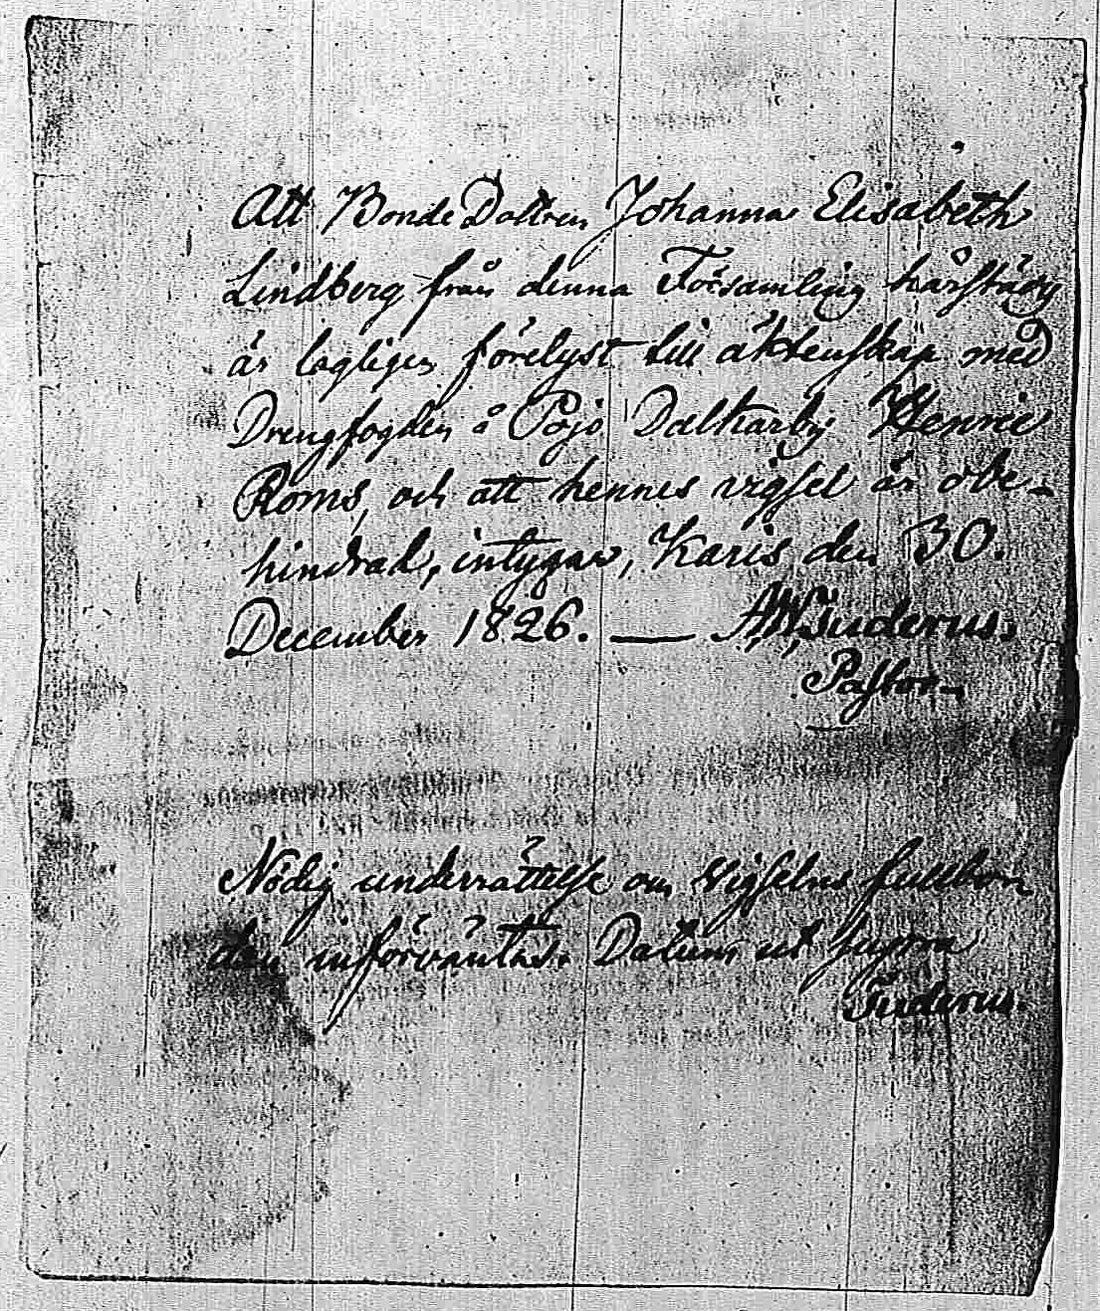 Att Bonde Dottren Johanna Elisabeth
Lindberg från denna Församling härstädes
är lagligen förelyst till äktenskap med
Drengfogden å Pojo Dalkarby Henric
Roms, och att hennes vigsel är obe-
hindrad, intygar, Karis den 30.
December 1826. — Suderus.
Pastor.
Nödig underrättelse om Vigselns fullbor
dan införväntas. Datum ut supra
Suderus.